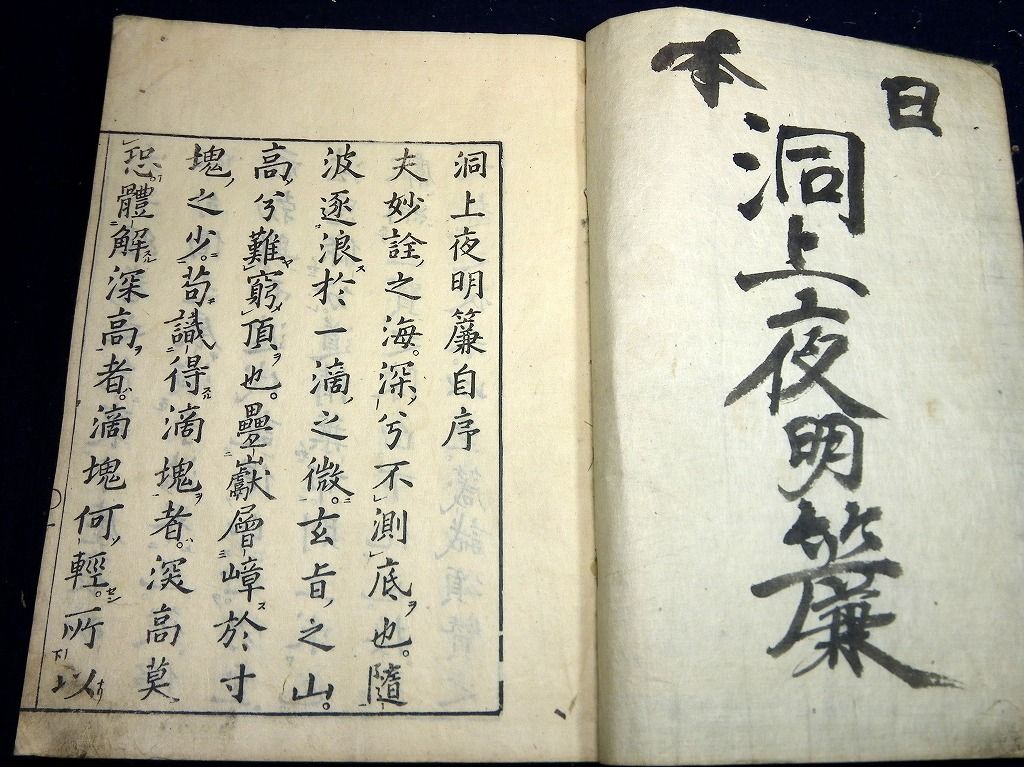 日本
洞上夜明簾
洞上夜明簾自序
夫妙詮之海。深兮不測底也。隨
波逐浪於一滴之微。玄旨之山。
高兮難窮頂也。疊巘層嶂於寸
塊之少。苟識得滴塊者。深高莫
恐。體解深高者。滴塊何輕。所以